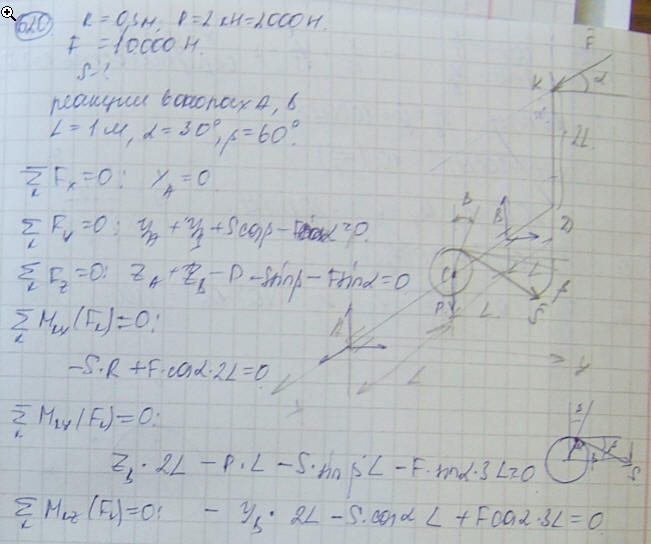 620
R = 0,3м, P = 2 кН = 2000 Н.
F = 10000 Н.
S - ?
реакции в опорах A, B
L = 1 м, α = 30°, β = 60°.
Σ Fx = 0 : XA = 0.
Σ Fy = 0 : YA + YB + S cos β - F cos α = 0.
Σ Fz = 0 : ZA + ZB - P - S sin β - F sin α = 0
Σ Mix (Fi) = 0 :
- S·R + F·cos α·2L = 0
Σ Miy (Fi) = 0 :
ZB · 2L - P·L - S·sin β·L - F·sin α·3L = 0
Σ Miz (Fi) = 0 : - YB · 2L - S·cos α L + F cos α·3L = 0
F
K
α
2L
D
B
C
L
P
L
S
A
L
x
y
S